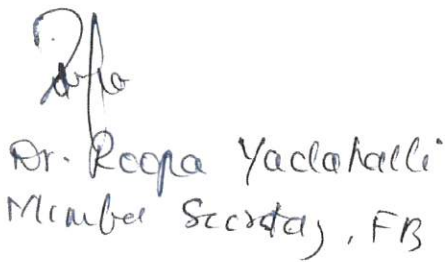 Dr. Roopa Yadahalli
Member Secretary, FB